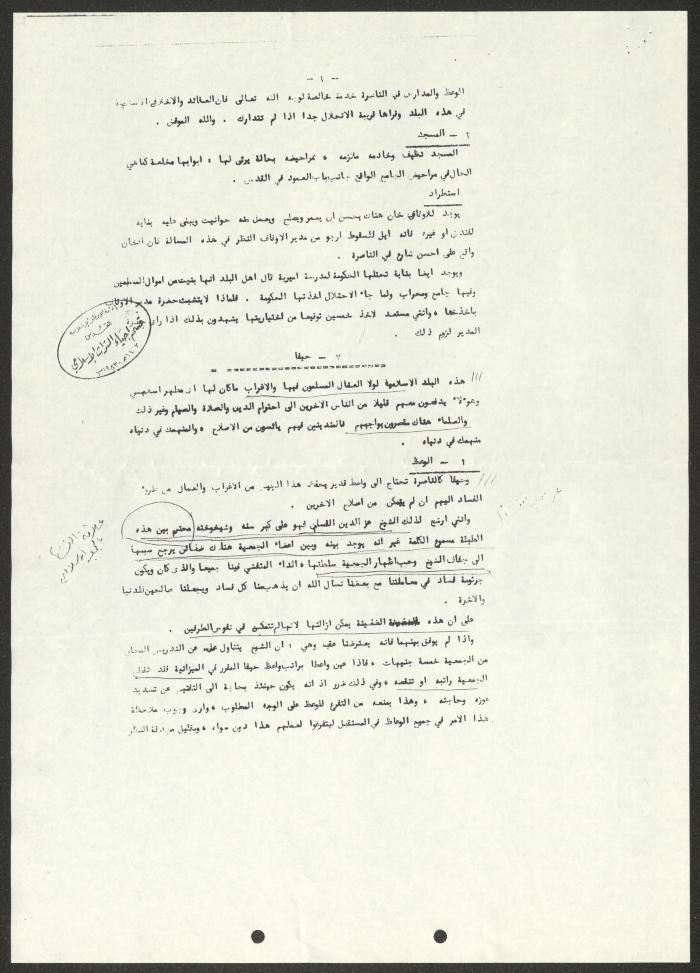 - ٤ -
الوعظ والمدارس في الناصرة خدمة خالصة لوجه الله تعالى فان العقائد والاخلاق
في هذه البلد وقراها قريبة الانحلال جدا اذا لم تتدارك . والله الموفق .
٢ - المسجد
المسجد نظيف وخادمه ملازمه ، مراحيضه بحالة يرثى لها ، ابوابها مخلعة كما هي
الحال في مراحيض الجامع الواقع جانب باب العمود في القدس .
استطراد
يوجد للاوقاف خان هناك يحسن ان يعمر ويصلح ويعمل منه حوانيت ويبنى عليه بناية
لفندق او غيره فانه ايل للسقوط ارجو من مدير الاوقاف النظر في هذه المسالة فان الخان
واقع على احسن شارع في الناصرة .
ويوجد ايضا بناية تحتلها الحكومة لمدرسة اميرية قال اهل البلد انها بنيت من اموال المسلمين
وفيها جامع ومحراب ولما جاء الاحتلال اخذتها الحكومة . فلماذا لا يتشبث حضرة مدير الاوقاف
باخذها ، وانني مستعد لاخذ خمسين توقيعا من اختياريتها يشهدون بذلك اذا راى
المدير لزوم ذلك .
قسم احياء التراث الاسلامي
٣ - حيفا
هذه البلد الاسلامية لولا العمال المسلمون فيها والاغراب ما كان لها اي مظهر اسلامي
وهؤلاء يدفعون معهم قليلا من الناس الاخرين الى احترام الدين والصلاة والصيام وغير ذلك
والعلماء هناك مقصرون بواجبهم فالمتدينين فيهم يائسون من الاصلاح ، والمنهمك في دنياه
منهمك في دنياه .
١ - الوعظ
وحيفا كالناصرة تحتاج الى واعظ قدير يحفظ هذا البهيم من الاغراب والعمال من
الفساد اليهم ان لم يتمكن من اصلاح الاخرين .
وانني ارشح لذلك الشيخ عز الدين القسام فهو على كبر سنه وشيخوخته محترم بين هذه
الطبقة مسموع الكلمة غير انه يوجد بينه وبين اعضاء الجمعية هناك ضغائن يرجع سببها
الى جفاف الشيخ وحب اظهار الجمعية سلطتها ، الداء المتفشي فينا جميعا والذي كان ويكون
جرثومة فساد في معاملاتنا مع بعضنا نسال الله ان يذهب عنا كل فساد ويجعلنا صالحين للدنيا
والاخرة .
على ان هذه الضغينة يمكن ازالتها لانها لم تتعكس في نفوس الطرفين .
واذا لم يوفق بينهما فانه يعترضنا عقبة وهي : ان الشيخ يتناول عن التدريس
من الجمعية خمسة جنيهات ، فاذا عين واعظا براتب واعظ حيفا المقرر في الميزانية فقد تقطع
الجمعية راتبه او تنقصه ، وفي ذلك ضرر اذ انه يكون حينئذ بحاجة الى التفتيش عن تسديد
عوزه وحاجته ، وهذا يمنعه من التفرغ للوعظ على الوجه المطلوب ، وارى وجوب ملاحظة
هذا الامر في جميع الوعاظ في المستقبل ليتفرغوا لعملهم هذا دون سواه ،